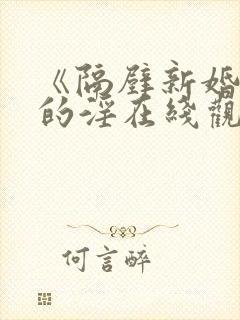 《隔壁新婚
的淫在线觀
何言醉